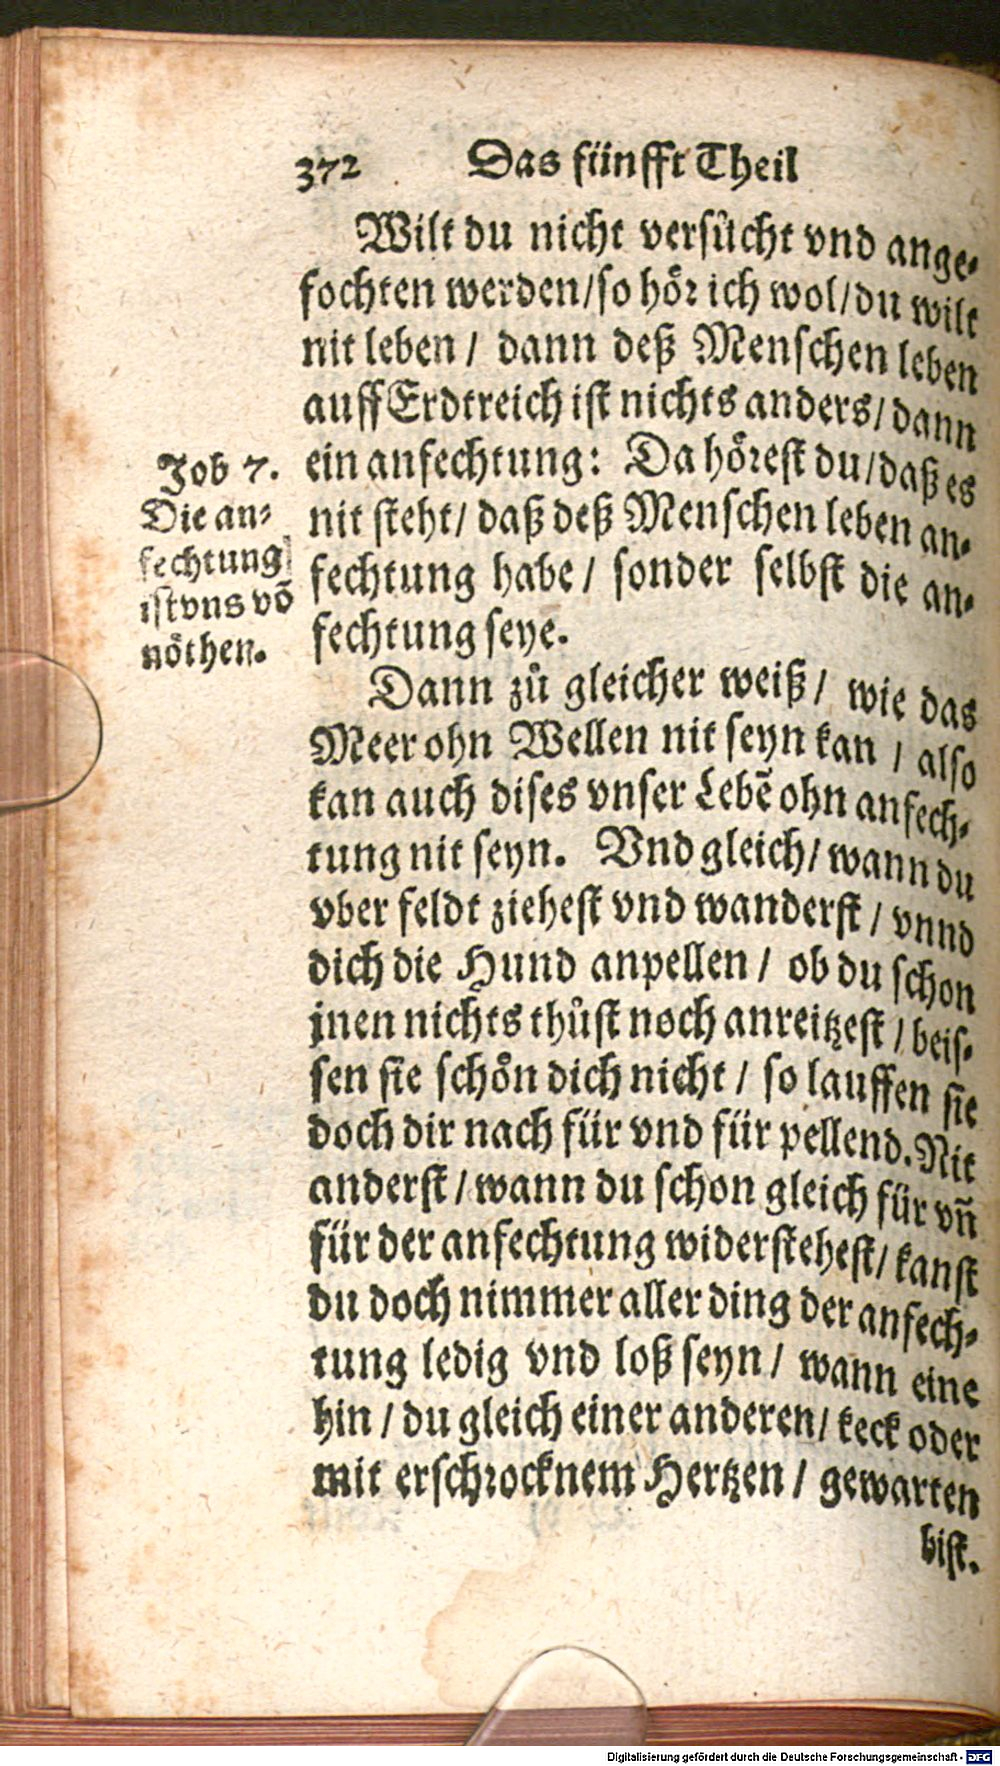 372 Das fünfft Theil
Wilt du nicht versůcht vnd ange-
fochten werden/so hör ich wol/du wilt
nit leben/ dann deß Menschen leben
auff Erdtreich ist nichts anders/dann
ein anfechtung: Da hörest du/daß es
nit steht/ daß deß Menschen leben an-
fechtung habe/ sonder selbst die an-
fechtung seye.
Job 7.
Die an-
fechtung
ist vns võ
nöthen.
Dann zů gleicher weiß/ wie das
Meer ohn Wellen nit seyn kan / also
kan auch dises vnser Lebẽ ohn anfech-
tung nit seyn. Vnd gleich/wann du
vber feldt ziehest vnd wanderst / vnnd
dich die Hund anpellen / ob du schon
jnen nichts thůst noch anreitzest/beis-
sen sie schön dich nicht / so lauffen sie
doch dir nach für vnd für pellend. Nit
anderst/wann du schon gleich für vñ
für der anfechtung widerstehest/kanst
du doch nimmer aller ding der anfech-
tung ledig vnd loß seyn/ wann eine
hin / du gleich einer anderen/keck oder
mit erschrocknem Hertzen / gewarten
bist.
Digitalisierung gefördert durch die Deutsche Forschungsgemeinschaft - DFG